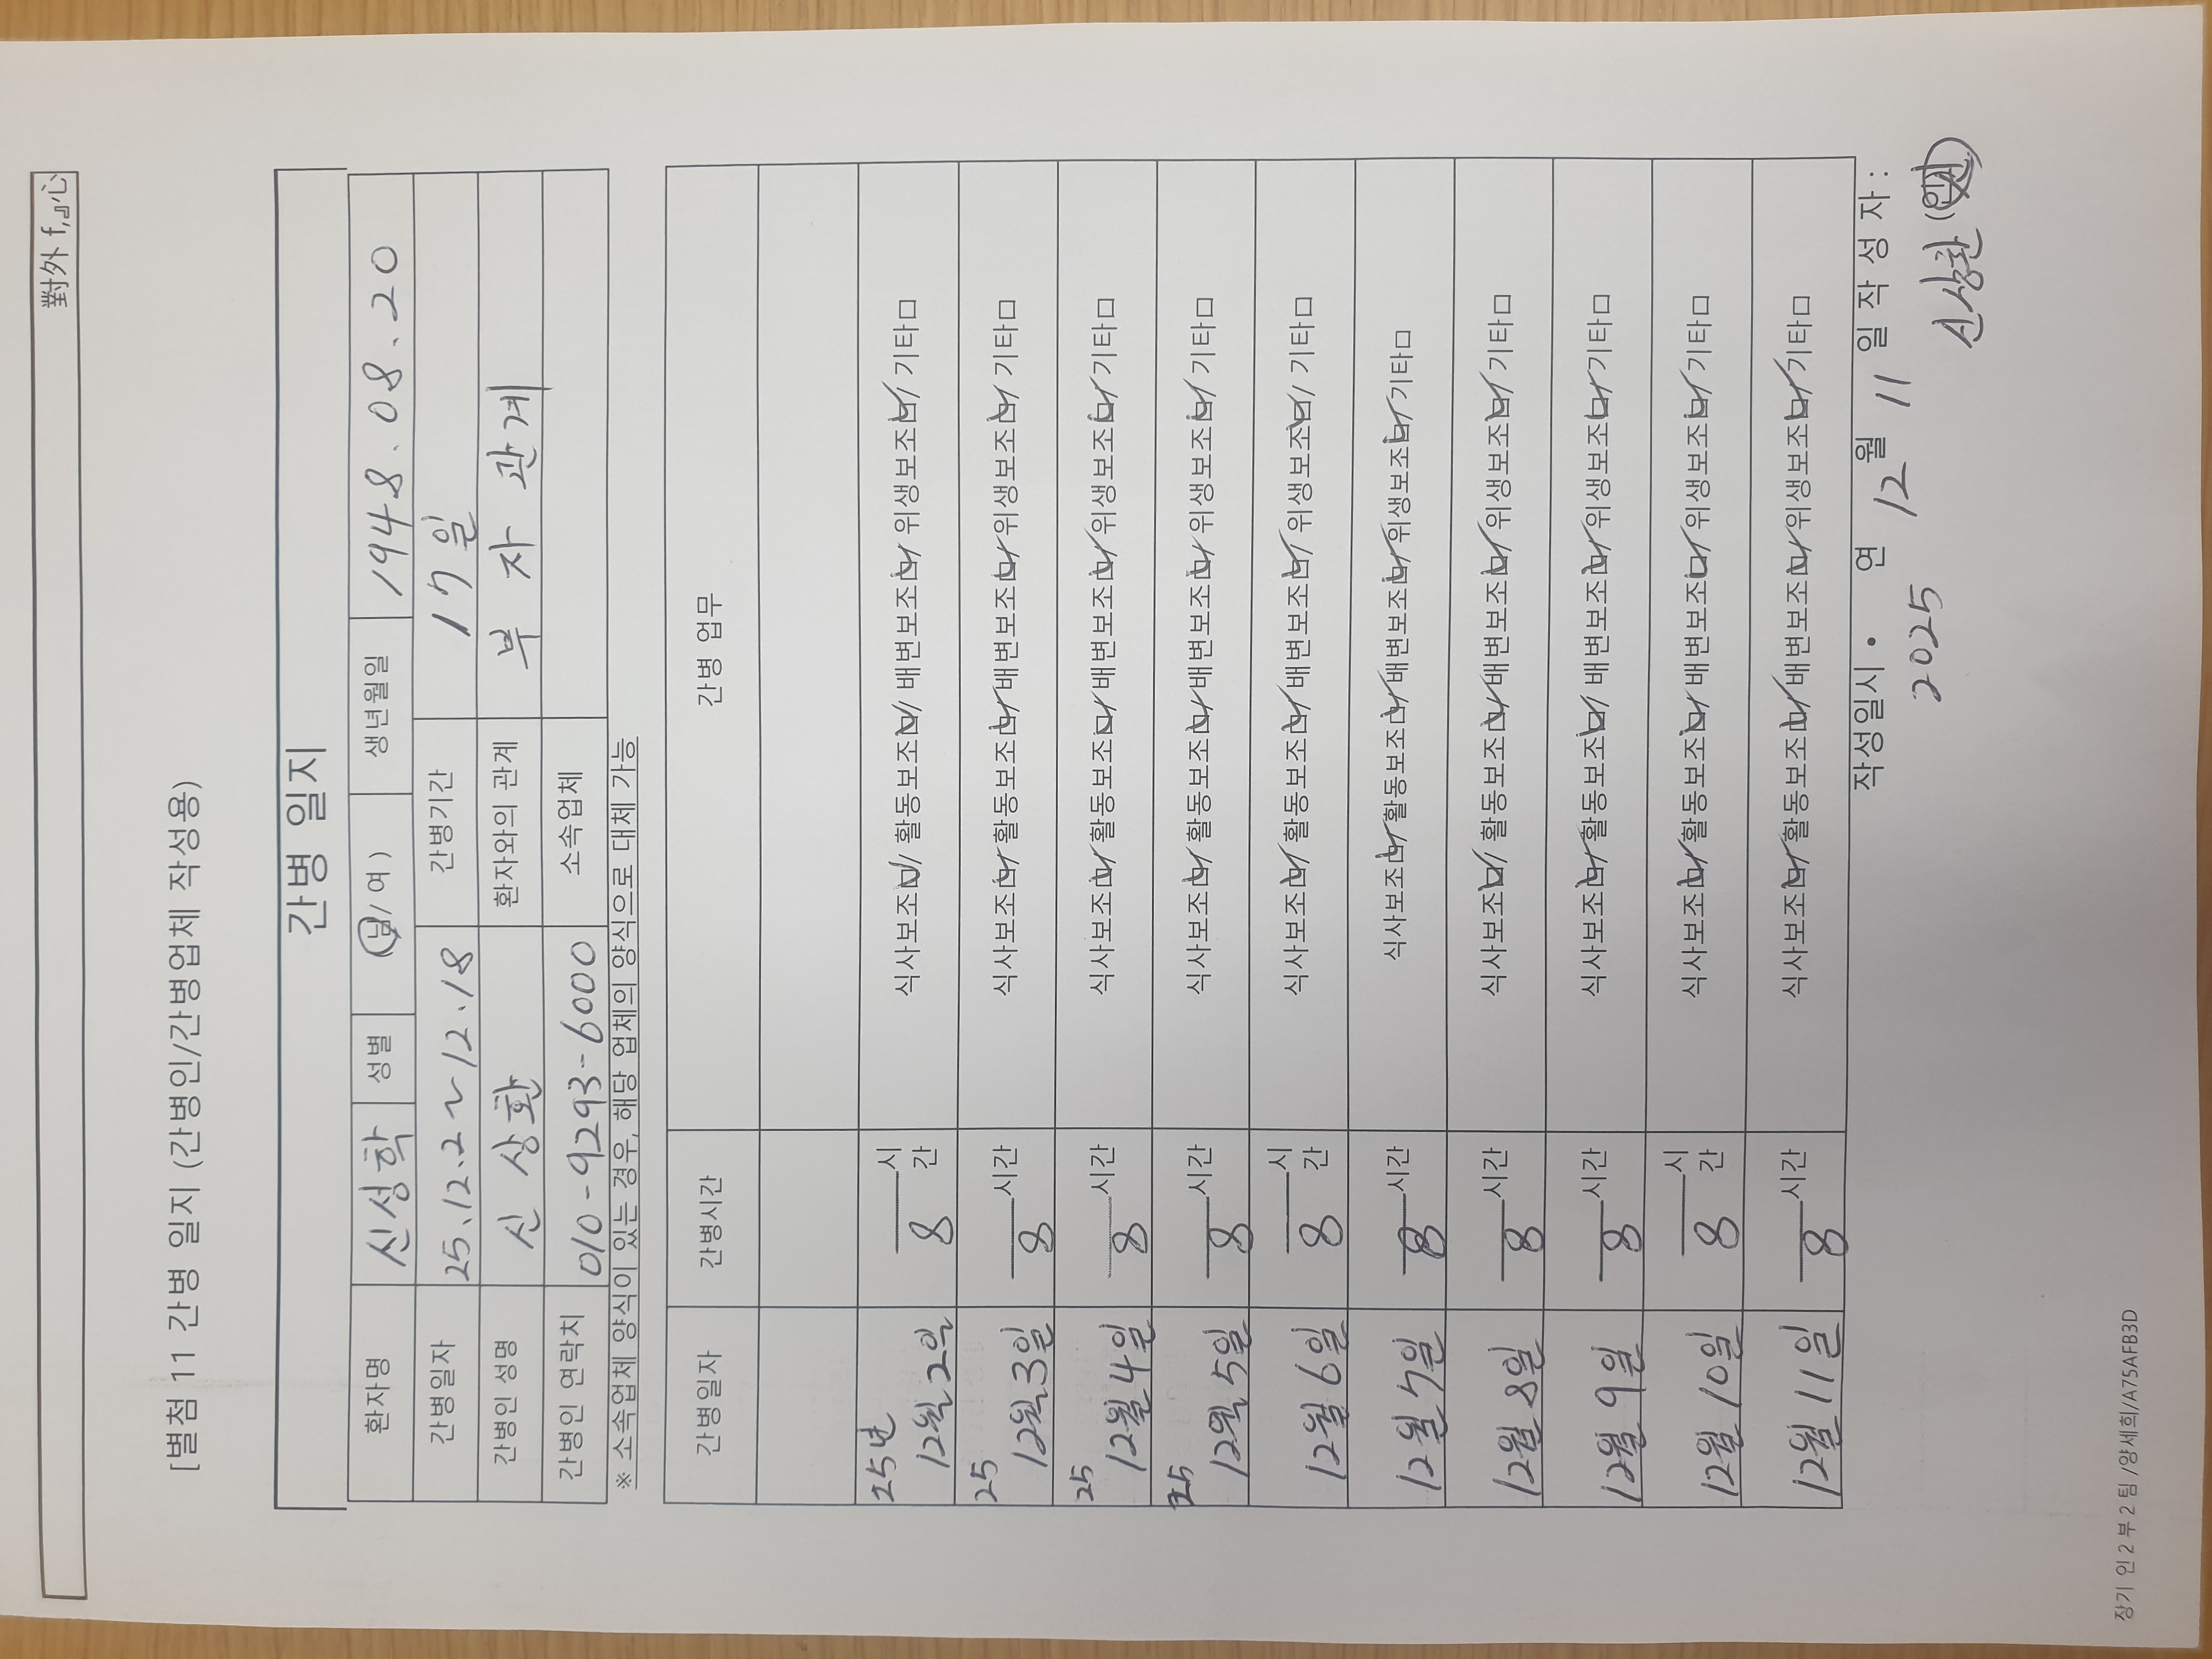 對外 f,』心
[별첨 11 간병 일지 (간병인/간병업체 작성용)
간병 일지
환자명 신성학 성별 (남/ 여 ) 생년월일 1948.08.20
간병일자 25.12.2~12.18 간병기간 17일
간병인 성명 신 상환 환자와의 관계 부 자 관계
간병인 연락처 010-9293-6000 소속업체
※ 소속업체 양식이 있는 경우, 해당 업체의 양식으로 대체 가능
간병일자 간병시간 간병 업무
25년 12월 2일 8 시간 식사보조☑ 활동보조☑ 배변보조☑ 위생보조☑ 기타□
25 12월 3일 8 시간 식사보조☑ 활동보조☑ 배변보조☑ 위생보조☑ 기타□
25 12월 4일 8 시간 식사보조☑ 활동보조☑ 배변보조☑ 위생보조☑ 기타□
25 12월 5일 8 시간 식사보조☑ 활동보조☑ 배변보조☑ 위생보조☑ 기타□
12월 6일 8 시간 식사보조☑ 활동보조☑ 배변보조☑ 위생보조☑ 기타□
12월 7일 8 시간 식사보조☑ 활동보조☑ 배변보조☑ 위생보조☑ 기타□
12월 8일 8 시간 식사보조☑ 활동보조☑ 배변보조☑ 위생보조☑ 기타□
12월 9일 8 시간 식사보조☑ 활동보조☑ 배변보조☑ 위생보조☑ 기타□
12월 10일 8 시간 식사보조☑ 활동보조☑ 배변보조☑ 위생보조☑ 기타□
12월 11일 8 시간 식사보조☑ 활동보조☑ 배변보조☑ 위생보조☑ 기타□
작성일시 • 2025 연 12 월 11 일 작 성 자 :
신상환
장기 인 2 부 2 팀 /양세희/A75AFB3D